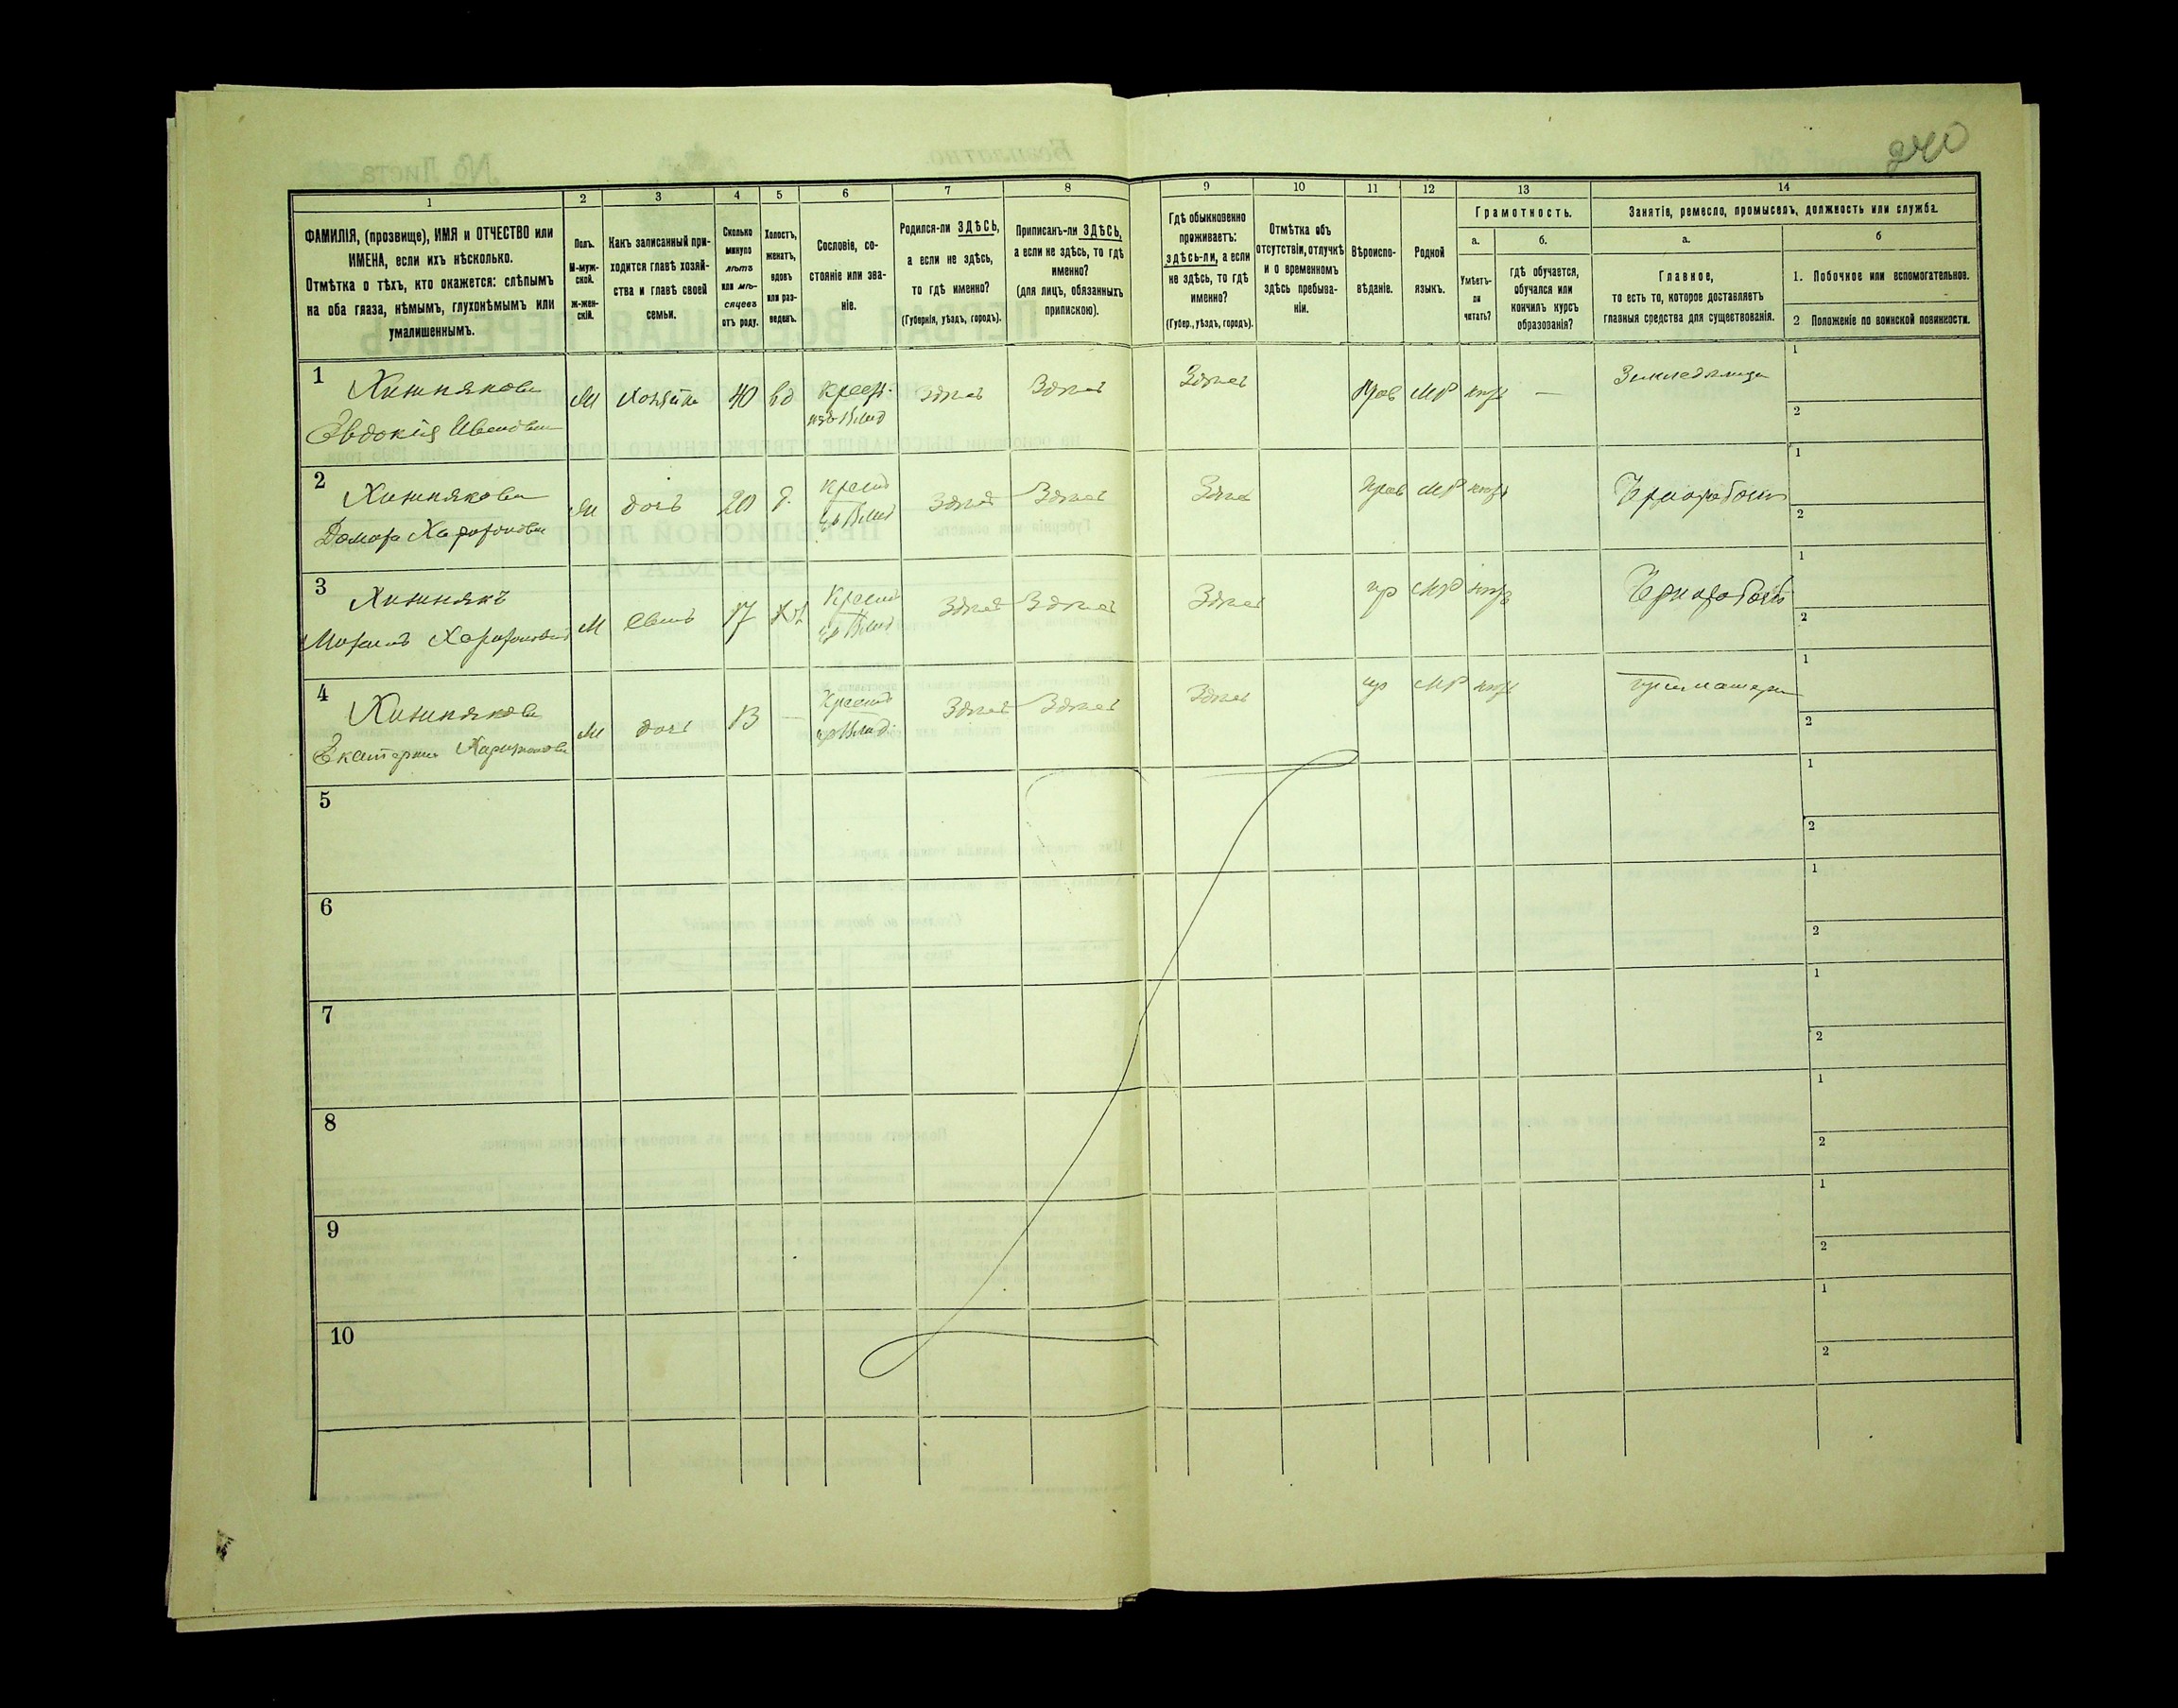 240
1
2
3
4
5
6
7
8
9
10
11
12
13
14
ФАМИЛІЯ, (прозвище), ИМЯ и ОТЧЕСТВО или
ИМЕНА, если ихъ нѣсколько.
Отмѣтка о тѣхъ, кто окажется: слѣпымъ
на оба глаза, нѣмымъ, глухонѣмымъ или
умалишеннымъ.
Полъ.
М-муж-
ской.
ж-жен-
скій.
Какъ записанный при-
ходится главѣ хозяй-
ства и главѣ своей
семьи.
Сколько
минуло
лѣтъ
или мѣ-
сяцевъ
отъ роду.
Холостъ,
женатъ,
вдовъ
или раз-
веденъ.
Сословіе, со-
стояніе или зва-
ніе.
Родился-ли ЗДѢСЬ,
а если не здѣсь,
то гдѣ именно?
(Губернія, уѣздъ, городъ).
Приписанъ-ли ЗДѢСЬ,
а если не здѣсь, то гдѣ
именно?
(для лицъ, обязанныхъ
припискою).
Гдѣ обыкновенно
проживаетъ:
здѣсь-ли, а если
не здѣсь, то гдѣ
именно?
(Губер., уѣздъ, городъ).
Отмѣтка объ
отсутствіи, отлучкѣ
и о временномъ
здѣсь пребыва-
ніи.
Вѣроиспо-
вѣданіе.
Родной
языкъ.
Грамотность.
а.
б.
Умѣетъ-
ли
читать?
гдѣ обучается,
обучался или
кончилъ курсъ
образованія?
Занятіе, ремесло, промыселъ, должность или служба.
а.
б
Главное,
то есть то, которое доставляетъ
главныя средства для существованія.
1. Побочное или вспомогательное.
2 Положеніе по воинской повинности.
1
Хижнякова
Евдокія Иванова
М Хозяйка 40 вд Крест. Здѣсь Здѣсь Здѣсь Прав МР —
1
2
2
Хижнякова
Домора Харитонова
дочь 20 Здѣсь Здѣсь Здѣсь Прав МР
1
2
3
Хижнякъ
Харитоновъ
М 17 Здѣсь Здѣсь Здѣсь пр МР
1
2
4
Хижнякова
Екатерина Харитонова
дочь 13 — Здѣсь Здѣсь Здѣсь пр МР при матери
1
2
5
1
2
6
1
2
7
1
2
8
1
2
9
1
2
10
1
2